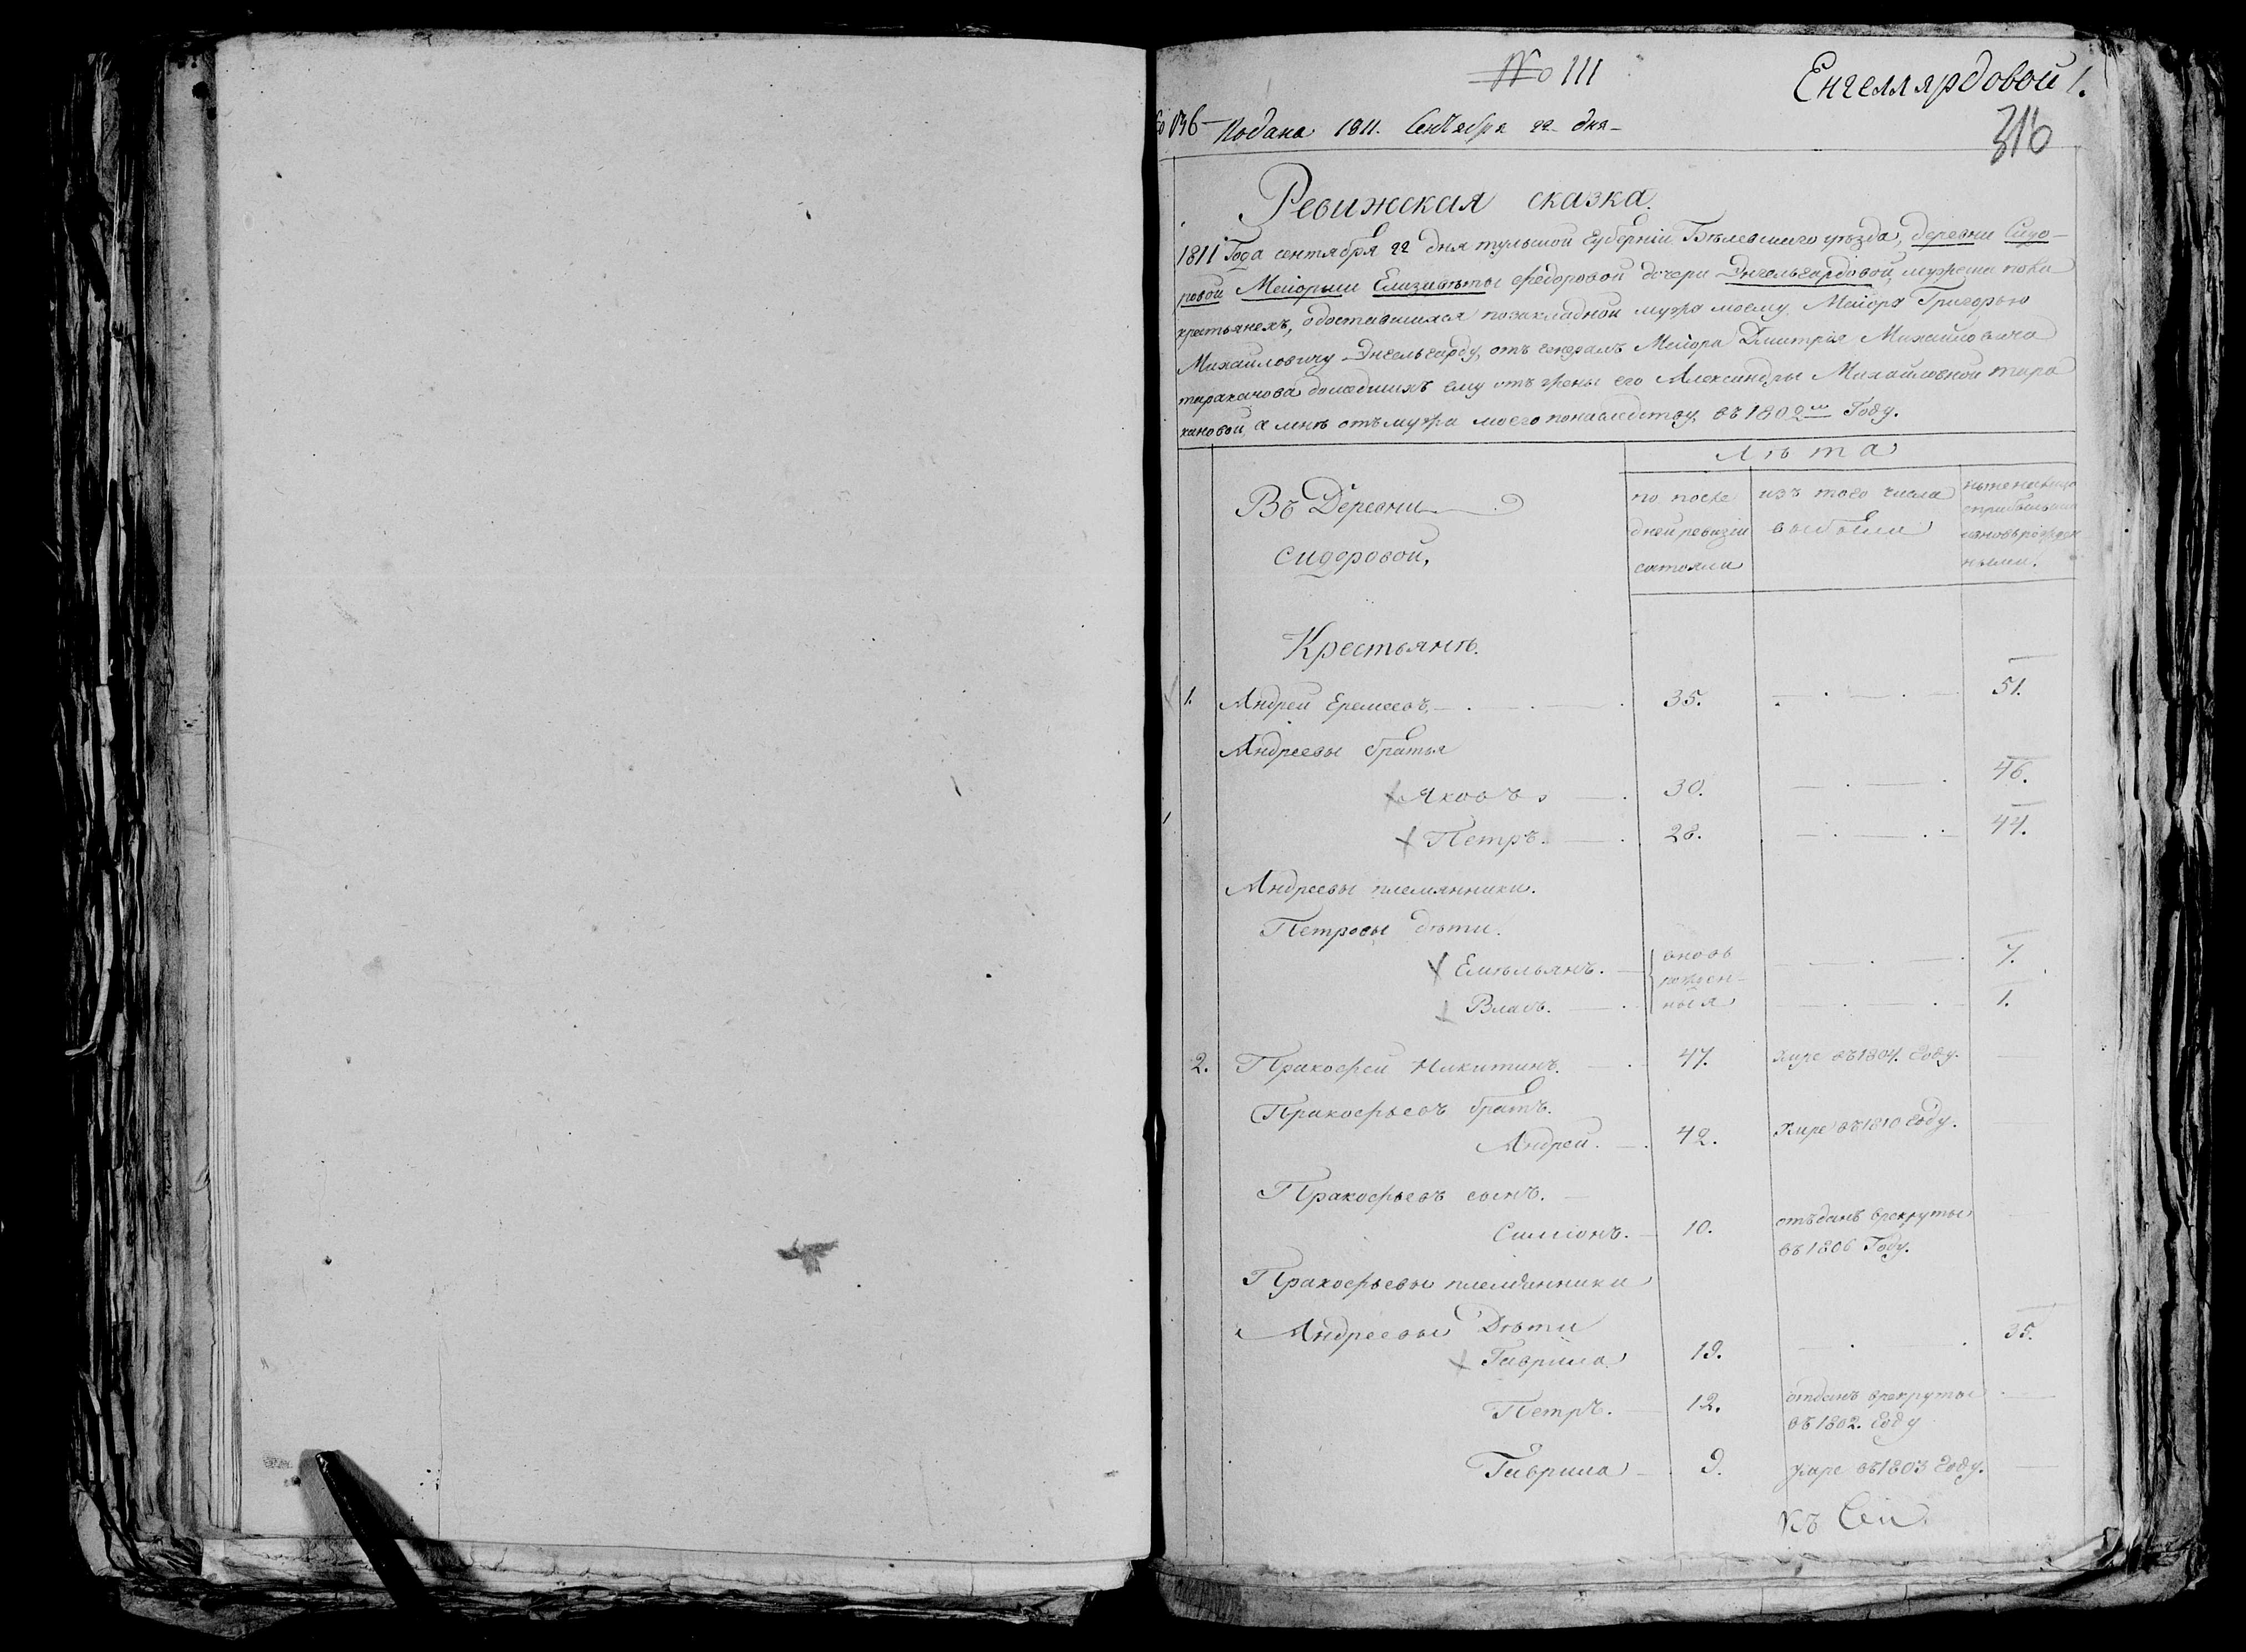 № 111
Енгеллярдовой 1.
316
Подана 1811. Сентября 22 дня
Ревижская сказка.
1811 Года сентября 22 дня тульской Губерніи Бѣлевскаго уѣзда, деревни Сидо-
ровой Меіорши Елизаветы Федоровой дочери Энгельгардовой, мужеска пола
крестьянехъ, адоставшихся позакладной мужа моему Меіора Григорью
Михайловичу Энгельгарду, отъ генералъ Меіора Дмитрія Михайловича
тараканова дошедшихъ ему отъ жены его Александры Михайловной тара
кановой, а мнѣ отъ мужа моего понаследству въ 1802 мъ Году.
Въ Деревни
сидоровой,
Лѣта
по после
дней ревизіи
состояли
изъ того числа
выбыли
ныне на лицо
с прибылыми
ивновьрожден
ными.
Крестьянъ.
1. Андрей Еремеевъ 35. 51.
Андреевы братья
Яковъ 30. 46.
Петръ. 28. 44.
Андреевы племянники.
Петровы дѣти.
Емельянъ. 7.
вновь
рожден-
ныя
Власъ. 1.
2. Пракофей Никитинъ. 47. Умре въ 1804. Году.
Пракофьевъ братъ.
Андрей. 42. Умре въ 1810 Году.
Пракофьевъ сынъ.
Симіонъ. 10. отъданъ врекруты
въ 1806 Году.
Пракофьевы племянники
Андреевы Дѣти
Гаврила 19. 35.
Петръ. 12. отданъ врекруты
въ 1802. Году
Гаврила 9. Умре въ 1803 Году.
Къ Сей